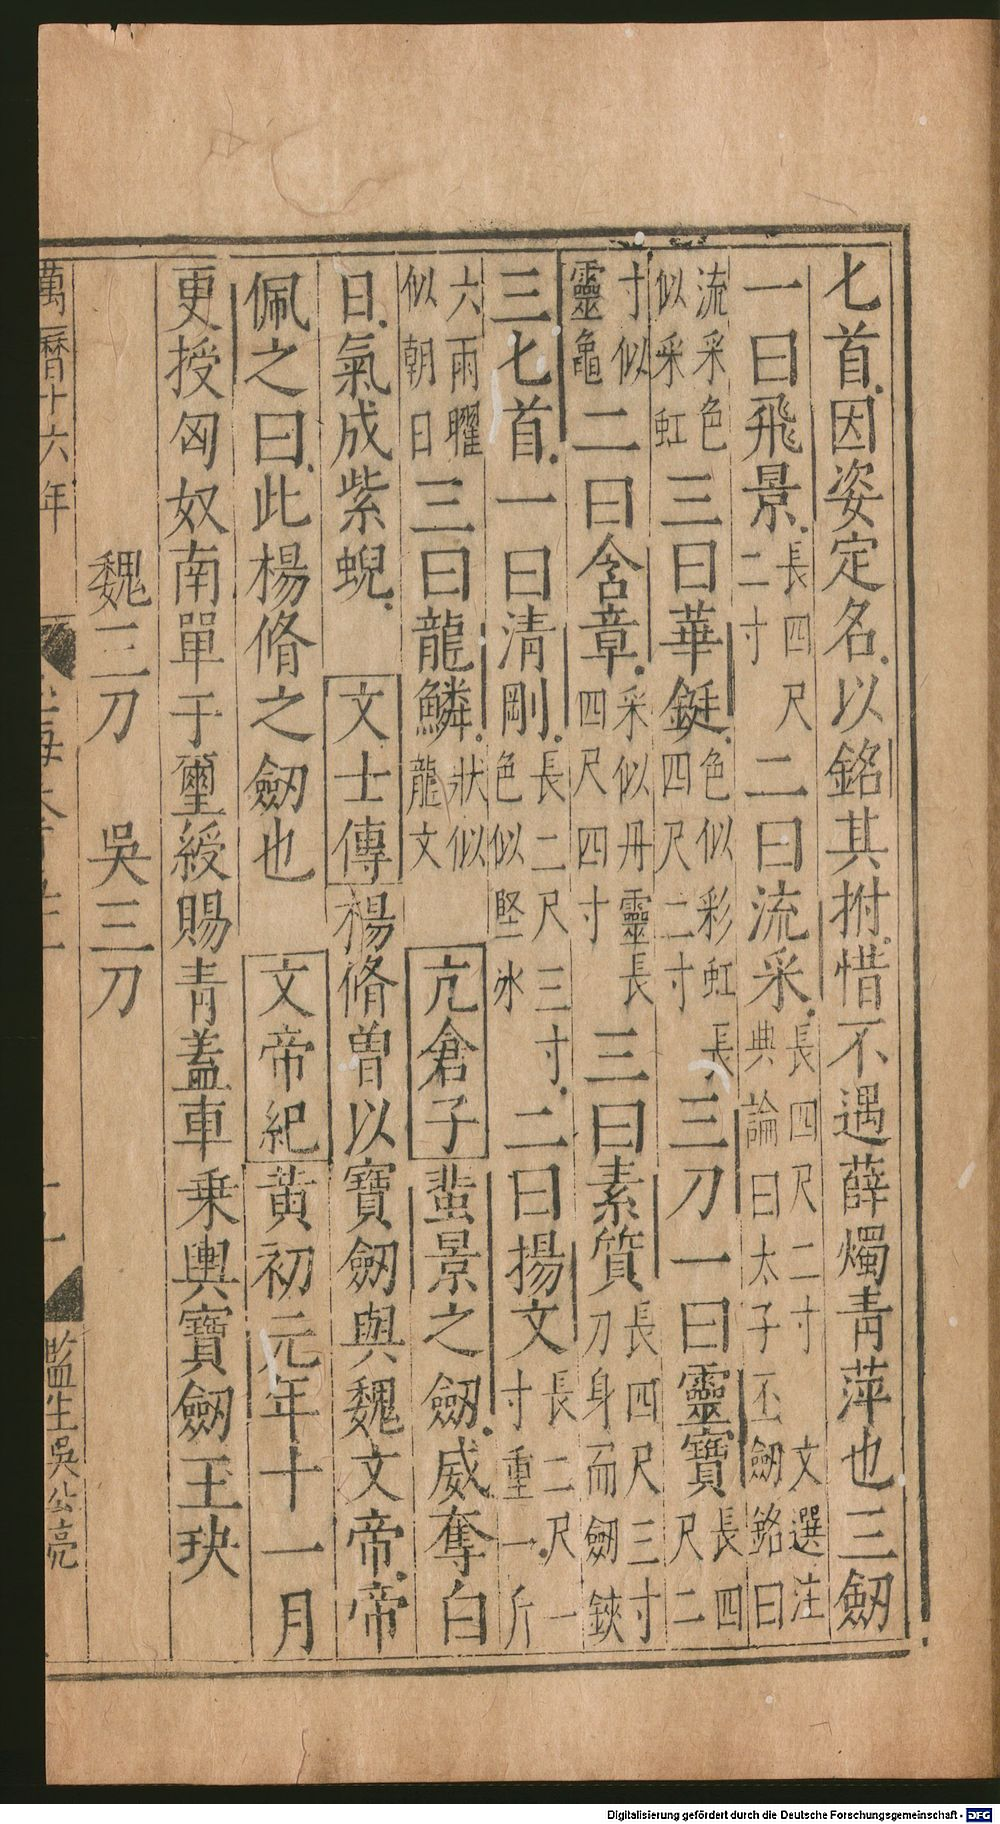 匕首因姿定名以銘其拊惜不遇薛燭青萍也三劒
一曰飛景長四尺二寸二曰流采長四尺二寸文選注典論曰太子丕劒銘曰
流采色似采虹三曰華鋌色似彩虹長四尺二寸三刀一曰靈寶長四尺二
寸似靈龜二曰含章采似丹靈長四尺四寸三曰素質長四尺三寸刀身而劒鋏
三匕首一曰清剛長二尺三寸色似堅冰二曰揚文長二尺一寸重一斤
六兩曜似朝日三曰龍鱗狀似龍文亢倉子蜚景之劒威奪白
日氣成紫蜺文士傳楊脩曾以寶劒與魏文帝帝
佩之曰此楊脩之劒也文帝紀黃初元年十一月
更授匈奴南單于璽綬賜青蓋車乗輿寶劒玉玦
魏三刀 吳三刀
萬曆十六年
監生吳公亮
Digitalisierung gefördert durch die Deutsche Forschungsgemeinschaft - DFG